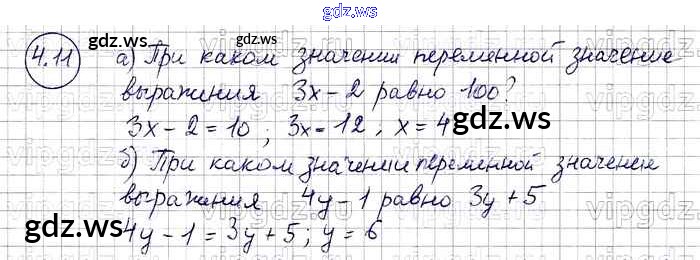 gdz.ws
4.11 а) При каком значении переменной значение
выражения 3x-2 равно 100?
3x-2=10; 3x=12; x=4
б) При каком значении переменной значение
выражения 4y-1 равно 3y+5
4y-1=3y+5; y=6
gdz.ws